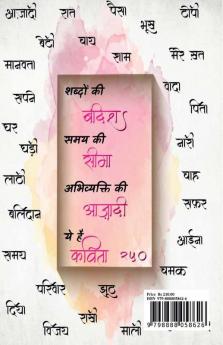 आज़ादी रात पैसा टोपी
भूख
बेटी चाय
मानवता शाम मेरे ख़त
सपने वादा
पिता
घर
घड़ी नारी
लाठी चाह
बलिदान सफ़र
समय आईना
चमक
परिवार झूठ
दिया राखी
विजय माली
शब्दों की
बंदिश
समय की
सीमा
अभिव्यक्ति की
आज़ादी
ये है
कविता २५०
Price: Rs 210.00
ISBN: 979-8888058626
9 798888 058626